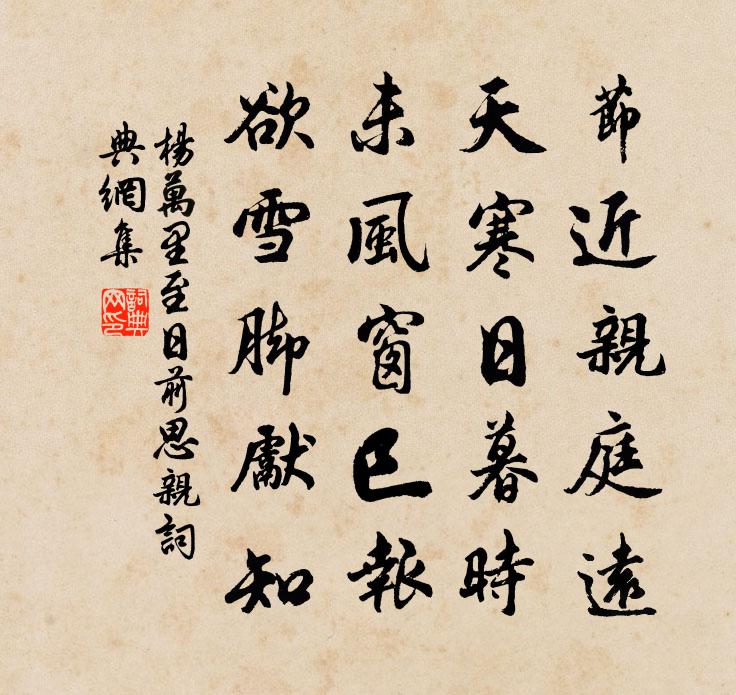 節近親庭遠
天寒日暮時
未風窗已報
欲雪脚獻知
楊萬里至日前思親詞
典網集
詞典
网印